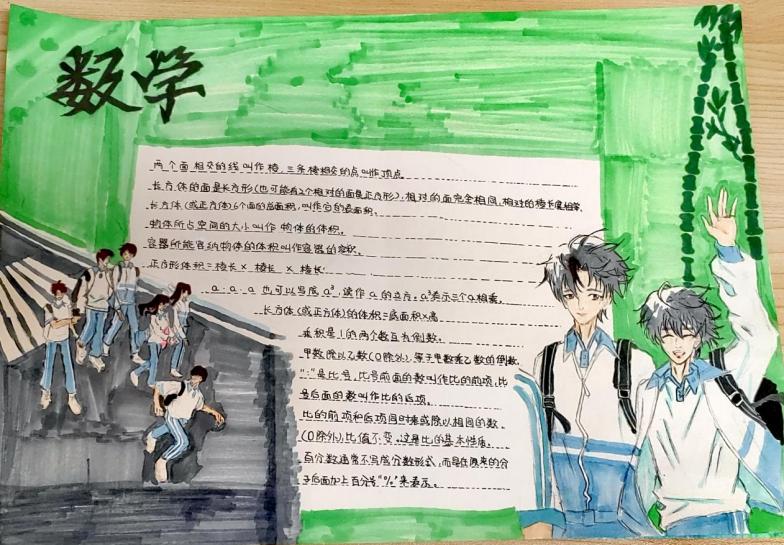 数学
两个面相交的线叫作棱,三条棱相交的点叫作顶点。
长方体的面是长方形(也可能有2个相对的面是正方形),相对的面完全相同,相对的棱长度相等。
长方体(或正方体)6个面的总面积,叫作它的表面积。
物体所占空间的大小叫作物体的体积。
容器所能容纳物体的体积叫作容器的容积。
正方形体积=棱长×棱长×棱长
a·a·a也可以写成a³,读作a的立方。a³表示三个a相乘。
长方体(或正方体)的体积=底面积×高
乘积是1的两个数互为倒数。
甲数除以乙数(0除外),等于甲数乘乙数的倒数。
":"是比号,比号前面的数叫作比的前项,比
号后面的数叫作比的后项。
比的前项和后项同时乘或除以相同的数。
(0除外),比值不变。这是比的基本性质。
百分数通常不写成分数形式,而是在原来的分
子后面加上百分号"%"来表示。